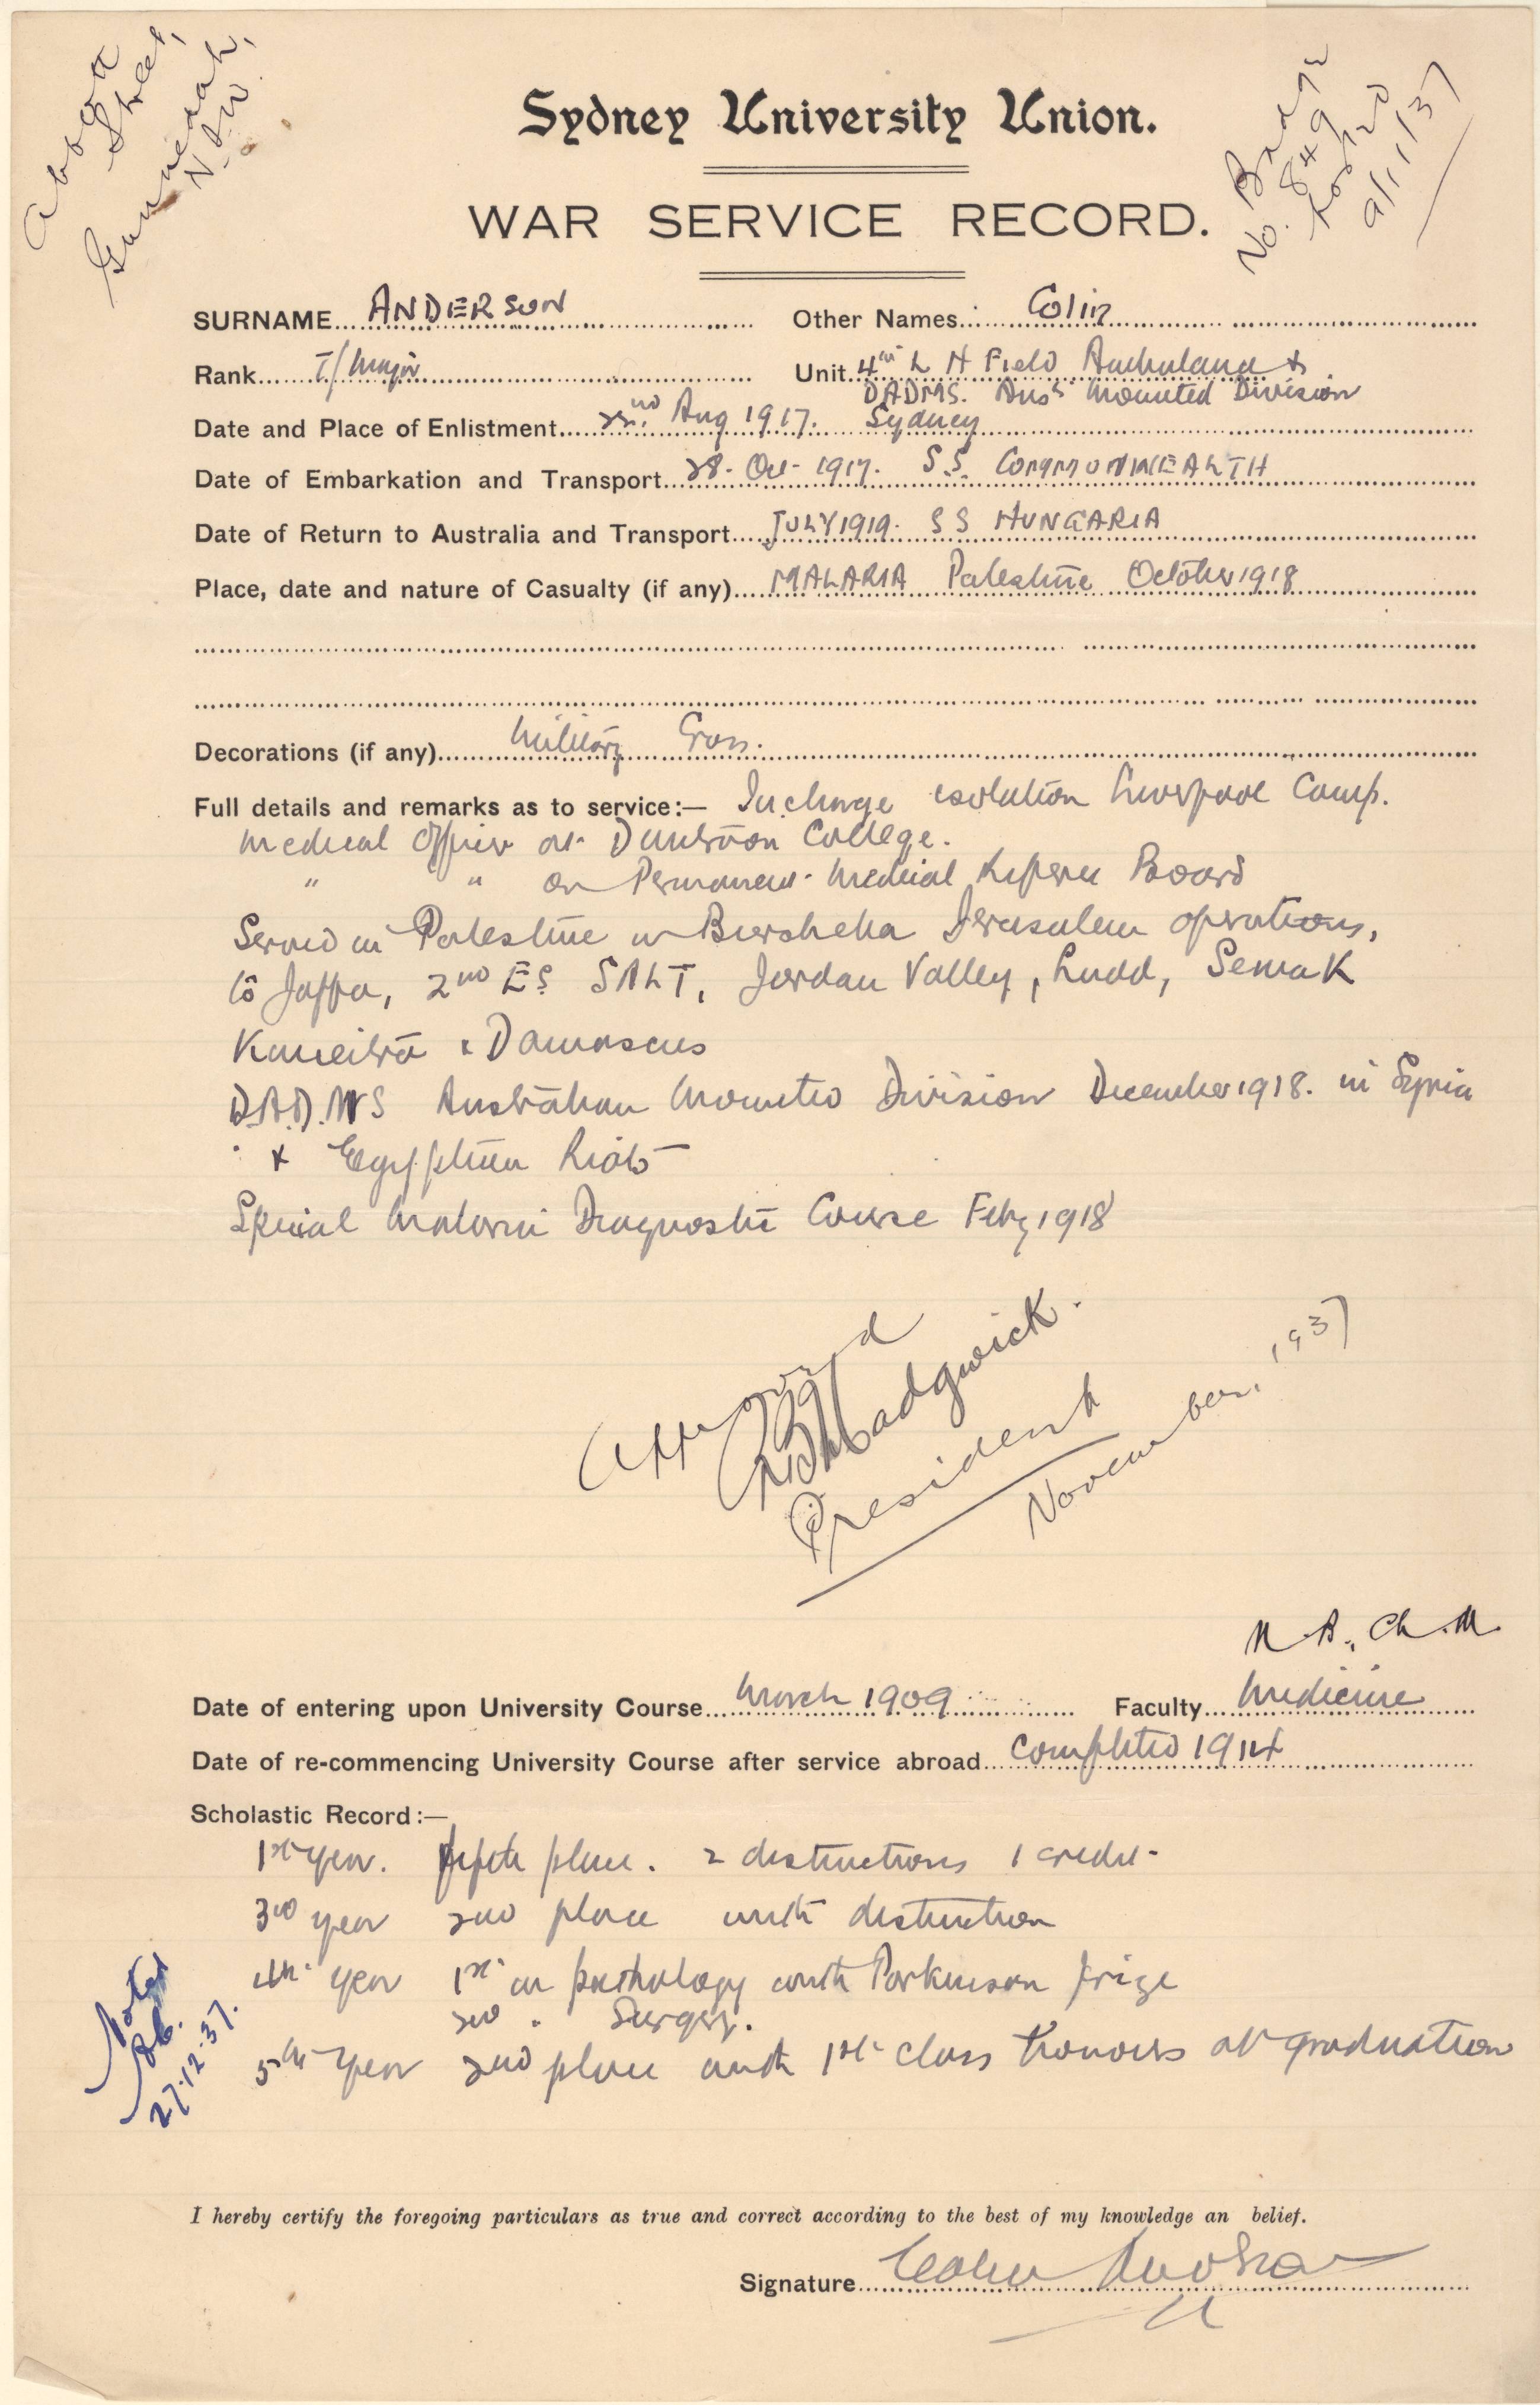 Abbott
Street,
Gunnedah,
N.S.W.
Badge
No. 849
Posted
9/11/37
Sydney University Union.
WAR SERVICE RECORD.
SURNAME ANDERSON Other Names Colin
Rank T/Major Unit 4th L H Field Ambulance &
DADMS. Aust Mounted Division
Date and Place of Enlistment 22nd Aug 1917. Sydney
Date of Embarkation and Transport 28. Oct 1917. S.S. COMMONWEALTH
Date of Return to Australia and Transport JULY 1919. S S HUNGARIA
Place, date and nature of Casualty (if any) MALARIA Palestine October 1918
Decorations (if any) Military Cross.
Full details and remarks as to service:— In charge isolation Liverpool Camp.
Medical Officer at Duntroon College.
" " on Permanent Medical Referee Board
Served in Palestine in Beersheba Jerusalem operations,
to Jaffa, 2nd Es SALT, Jordan Valley, Ludd, Semak
Kuneitra & Damascus
D.A.D.M.S Australian Mounted Division December 1918. in Syria
& Egyptian Riots
Special Malaria Diagnostic Course Feby 1918
Approved
Madgwick.
President
November, 1937
M.B., Ch.M.
Date of entering upon University Course March 1909 Faculty Medicine
Date of re-commencing University Course after service abroad completed 1914
Scholastic Record:—
1st year. fifth place. 2 distinctions 1 credit.
3rd year 2nd place with distinction
4th year 1st in pathology with Parkinson prize
2nd " Surgery.
5th year 2nd place with 1st class honours at graduation
Noted
27.12.37.
I hereby certify the foregoing particulars as true and correct according to the best of my knowledge an belief.
Signature Colin Anderson